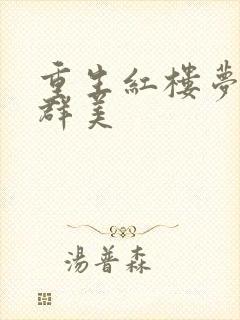 重生紅樓夢
群美
湯普森